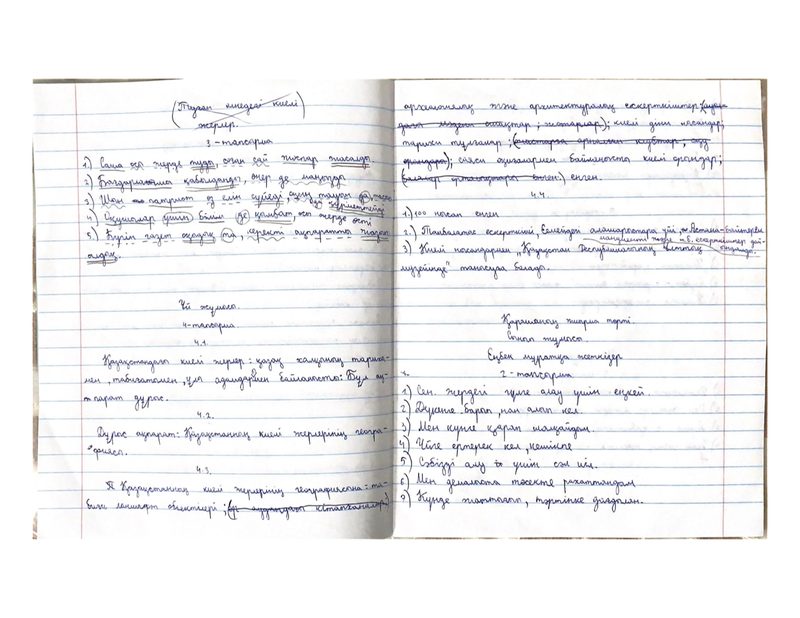 Туған өлкедегі киелі
жерлер.
3-тапсырма
1) Саша осы жерде туды, оған үй жоспар жасалды
2) Бағдарлама қабылданды, әнер де маңызды
3) Шын патриот өз елін сүйеді, оның тілін де, жерін
де құрметтейді
4) Оқушылар үшін білім де қымбат, осы жерде өсті
5) Бүгін газет оқыдық та, керекті ақпаратты жазып
алдық.
Үй жұмысы.
4-тапсырма
4.1.
Қазақстандағы киелі жерлер: қазақ халқының тарихы-
мен, табиғатымен, ұлы адамдармен байланысты. Бұл ақ-
парат дұрыс.
4.2.
Дұрыс ақпарат: Қазақстанның киелі жерлерінің геогра-
фиясы.
4.3.
Қазақстанның киелі жерлерінің географиясына: та-
биғи ландшафт объектілері;
археологиялық және архитектуралық ескерткіштер
киелі діни нысандар;
тарихи тұлғалар;
саяси оқиғалармен байланысты киелі орындар;
енген.
4.4.
1.) 100 нысан енген
2.) Тамбалытас ескерткіші, Есмейдегі алашордашылар үйі, Астана-Бәйтерек
монументі және т.б. ескерткіштер
3) Киелі нысандармен „Қазақстан Республикасының Ұлттық
музейінде" танысуға болады.
Қарашаның жиырма төрті.
Сынып жұмысы.
Еңбек мұратқа жеткізер
2-тапсырма
1) Сен жердегі гүлге алу үшін еңкей.
2) Дүкенге барып, нан алып кел.
3) Мен күнге қарап шалқайдым.
4) Үйге ертерек кел, кешікпе
5) Сәбізді алу үшін сәл иіл.
6) Мен демалыста төсекте рахаттандым
7) Күнде жаттығып, тәртіпке дағдылан.